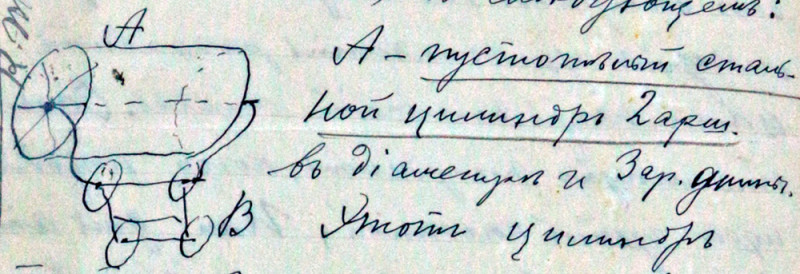 следующемъ:
А
А — пустотѣлый сталь-
ной цилиндръ 2 арш.
въ діаметрѣ и 3 ар. длины.
В
Этотъ цилиндръ